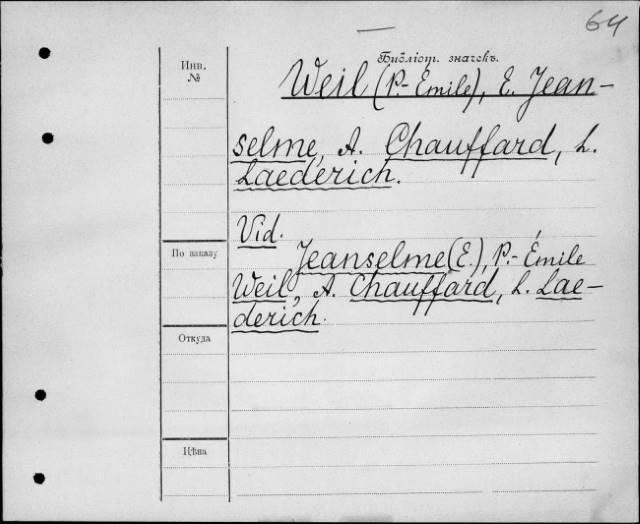 64
Библіот. значекъ.
Инв.
№
Weil (P.-Emile), E. Jean-
selme, A. Chauffard, L.
Laederich.
Vid.
По заказу
Jeanselme (E.), P.-Émile
Weil, A. Chauffard, L. Lae-
derich.
Откуда
Цѣна